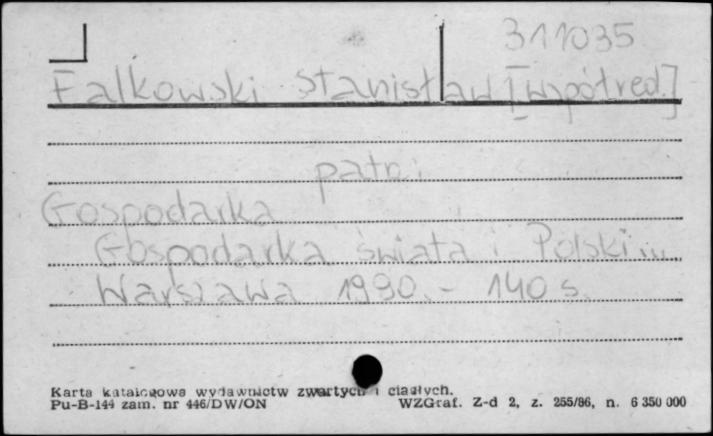 311035
Falkowski Stanisław [współred.]
patrz:
Gospodarka
Gospodarka świata i Polski ...
Warszawa 1990.- 140 s.
Karta katalogowa wydawnictw zwartych i ciągłych.
Pu-B-144 zam. nr 446/DW/ON WZGraf. Z-d 2, z. 255/86, n. 6 350 000